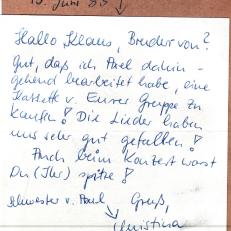 15. Juni 83
Hallo Klaus, Bruder von?
Gut, daß ich Axel dahin-
gehend bearbeitet habe, eine
Kassette v. Eurer Gruppe zu
kaufen! Die Lieder haben
uns sehr gut gefallen!
Auch beim Konzert warst
Du (Ihr) spitze!
Schwester v. Axel Gruß,
Christina